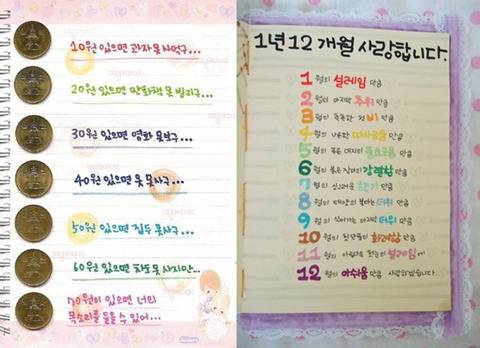 10원 있으면 과자 못 사먹구...
20원 있으면 만화책 못 빌리구
30원 있으면 영화 못보구...
40원 있으면 옷 못 사구...
50원 있으면 집두 못사구...
60원 있으면 차도 못 사지만...
70원이 있으면 너의
목소리를 들을 수 있어...
1년 12개월 사랑합니다.
1월의 설레임 만큼
2월의 마지막 추위 만큼
3월의 촉촉한 첫 비 만큼
4월의 나른한 따사로움 만큼
5월의 푸른 대지의 만큼
6월의 붉은 장미의 강렬함 만큼
7월의 싱그러운 향기 만큼
8월의 태양의 불타는 더위 만큼
9월의 식어가는 마지막 더위 만큼
10월의 첫 단풍의 화려함 만큼
11월의 첫눈의 설레임
12월의 아쉬움 만큼 사랑하겠습니다.